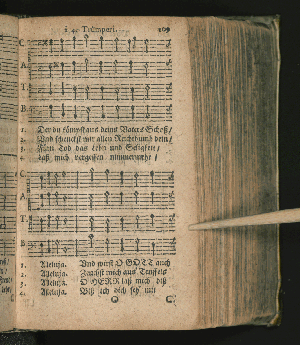 à 4. Trumperi. 109
C.
A.
T.
B.
1. Der du kömpst aus deins Vaters Schoß/
2. Und schenckst mir allen Reichthumb dein/
3. Kein Tod das Lebn und Seligkeit/
4. laß mich vergessen nimmermehr/
C.
A.
T.
B.
1. Aleluja. Und wirst O GOTT auch
2. Aleluja. mich aus Teuffels
3. Aleluja. O HERR laß mich diß
4. Aleluja. Biß ich dich seh mit